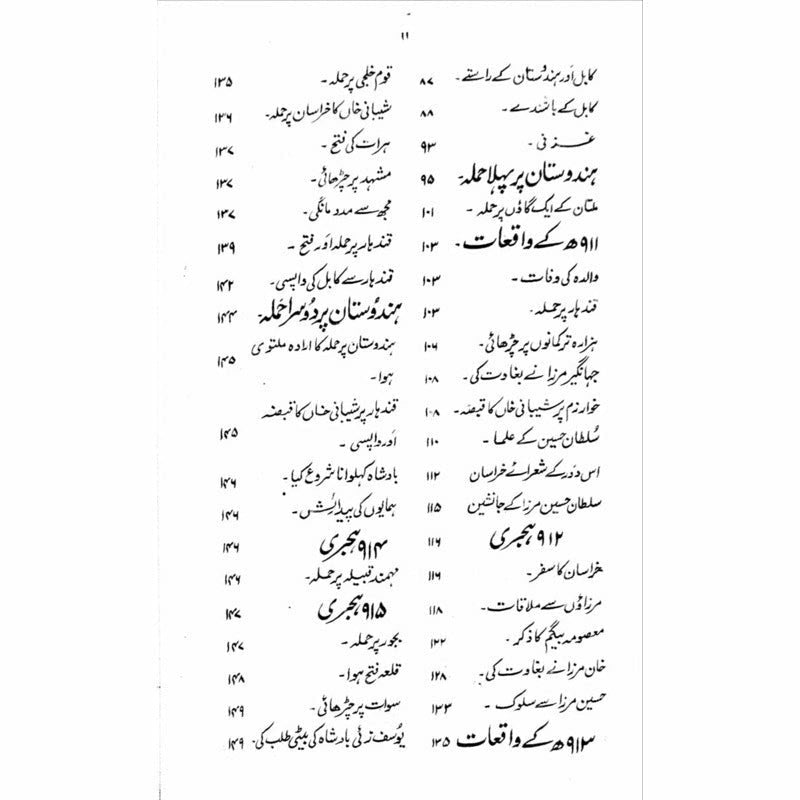 ۱۱
کابل اور ہندوستان کے راستے۔ ۸۷
کابل کے باشندے۔ ۸۸
غزنی۔ ۹۳
ہندوستان پر پہلا حملہ۔ ۹۵
ملتان کے ایک گاؤں پر حملہ۔ ۱۰۱
۹۱۱ھ کے واقعات۔ ۱۰۳
والدہ کی وفات۔ ۱۰۳
قندہار پر حملہ۔ ۱۰۳
ہزارہ ترکمانوں پر چڑھائی۔ ۱۰۶
جہانگیر مرزا نے بغاوت کی۔ ۱۰۸
خوارزم پر شیبانی خاں کا قبضہ۔ ۱۰۸
سُلطان حسین کے علما۔ ۱۱۰
اس دور کے شعرائے خراسان ۱۱۲
سلطان حسین مرزا کے جانشین ۱۱۵
۹۱۲ ہجری ۱۱۶
خراسان کا سفر۔ ۱۱۶
مرزاؤں سے ملاقات۔ ۱۱۸
معصومہ بیگم کا ذکر۔ ۱۲۲
خان مرزا نے بغاوت کی۔ ۱۲۸
حسین مرزا سے سلوک۔ ۱۳۳
۹۱۳ھ کے واقعات ۱۳۵
قوم خلجی پر حملہ۔ ۱۳۵
شیبانی خاں کا خراسان پر حملہ۔ ۱۳۶
ہرات کی فتح۔ ۱۳۷
مشہد پر چڑھائی۔ ۱۳۷
مجھ سے مدد مانگی۔ ۱۳۷
قندہار پر حملہ اور فتح۔ ۱۳۹
قندہار سے کابل کی واپسی۔ ۱۴۲
ہندوستان پر دُوسرا حملہ۔ ۱۴۴
ہندوستان پر حملہ کا ارادہ ملتوی
ہوا۔ ۱۴۵
قندہار پر شیبانی خاں کا قبضہ
اور واپسی۔ ۱۴۵
بادشاہ کہلوانا شروع کیا۔ ۱۴۶
ہمایوں کی پیدائش۔ ۱۴۶
۹۱۴ ہجری ۱۴۶
مہمند قبیلہ پر حملہ۔ ۱۴۶
۹۱۵ ہجری ۱۴۷
بجور پر حملہ۔ ۱۴۷
قلعہ فتح ہوا۔ ۱۴۸
سوات پر چڑھائی۔ ۱۴۹
یُوسف زئی بادشاہ کی بیٹی طلب کی۔ ۱۴۹